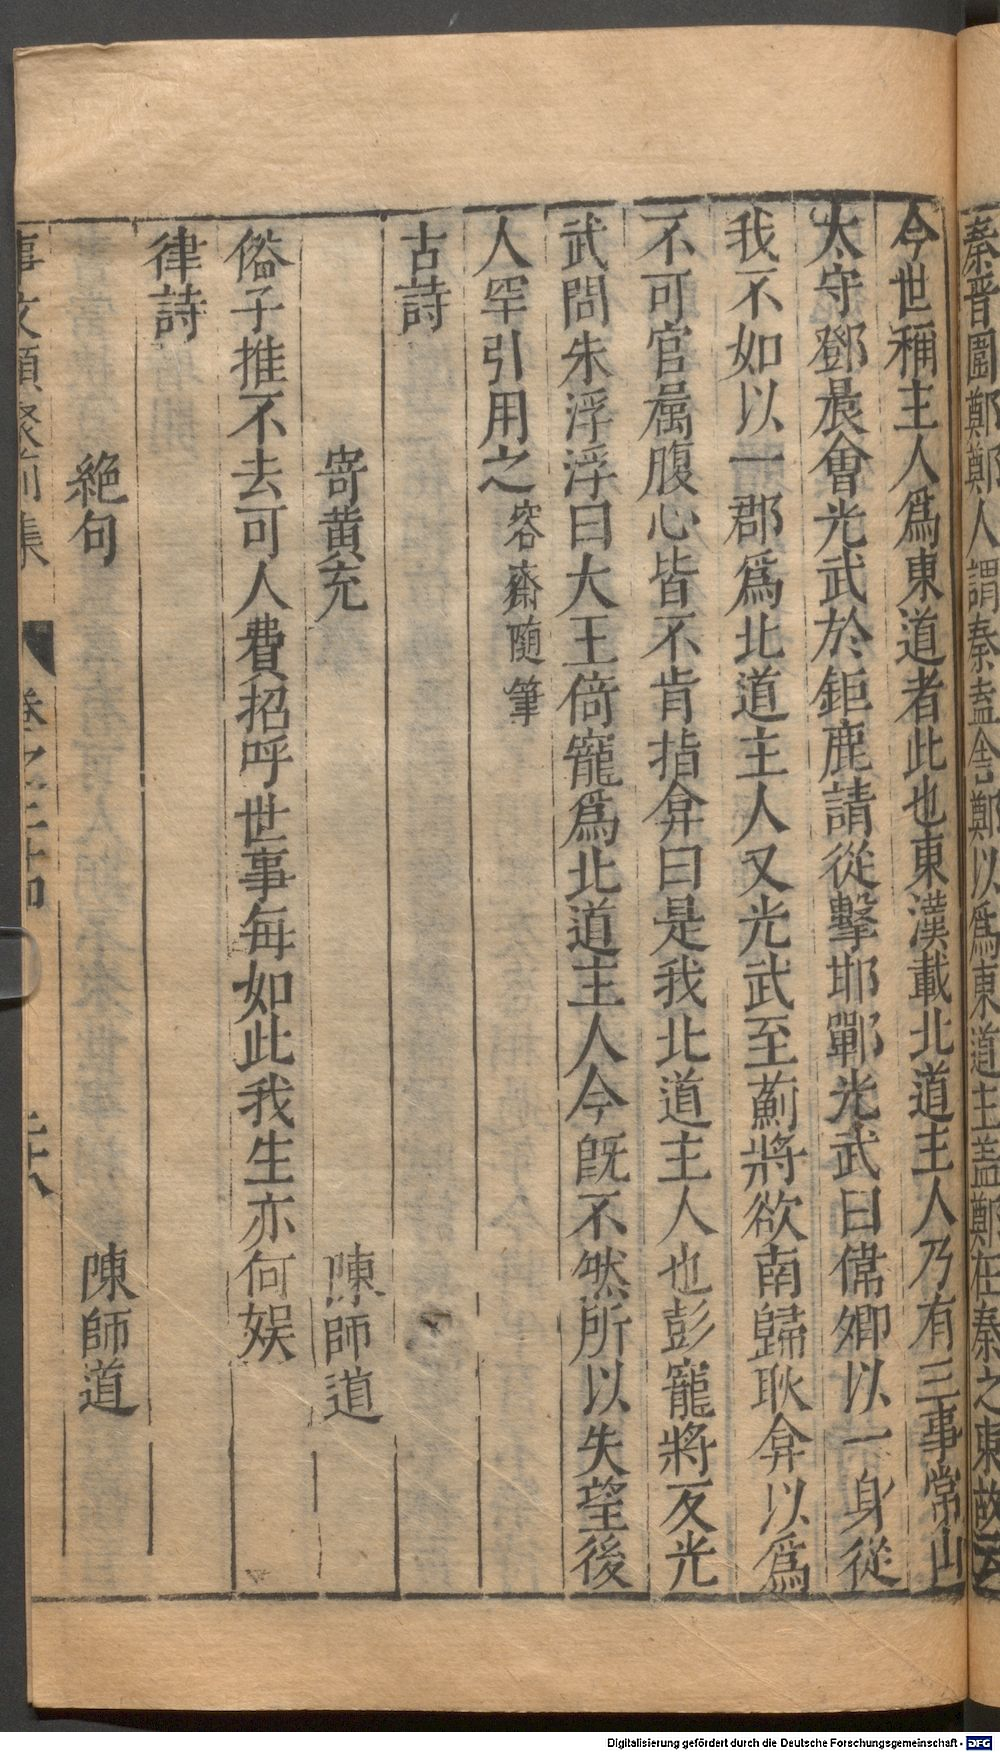 秦晉圍鄭鄭人謂秦盍舎鄭以爲東道主蓋鄭在秦之東故云
今世稱主人爲東道者此也東漢載北道主人乃有三事常山
太守鄧晨會光武於鉅鹿請從擊邯鄲光武曰偉卿以一身從
我不如以一郡爲北道主人又光武至薊將欲南歸耿弇以爲
不可官属腹心皆不肯指弇曰是我北道主人也彭寵將反光
武問朱浮浮曰大王倚寵爲北道主人今既不然所以失望後
人罕引用之 容齋随筆
古詩
寄黄充 陳師道
俗子推不去可人費招呼世事每如此我生亦何娱
律詩
絶句 陳師道
事文類聚前集 卷之二十四
Digitalisierung gefördert durch die Deutsche Forschungsgemeinschaft - DFG